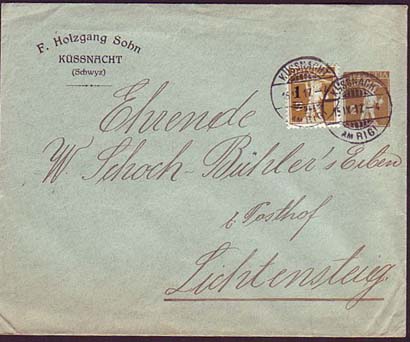 F. Holzgang Sohn
KÜSSNACHT
(Schwyz)
KÜSSNACHT
AM RIGI
KÜSSNACHT
AM RIGI
1
Ehrende
W. Schoch-Bühler's Erben
z. Posthof
Lichtensteig